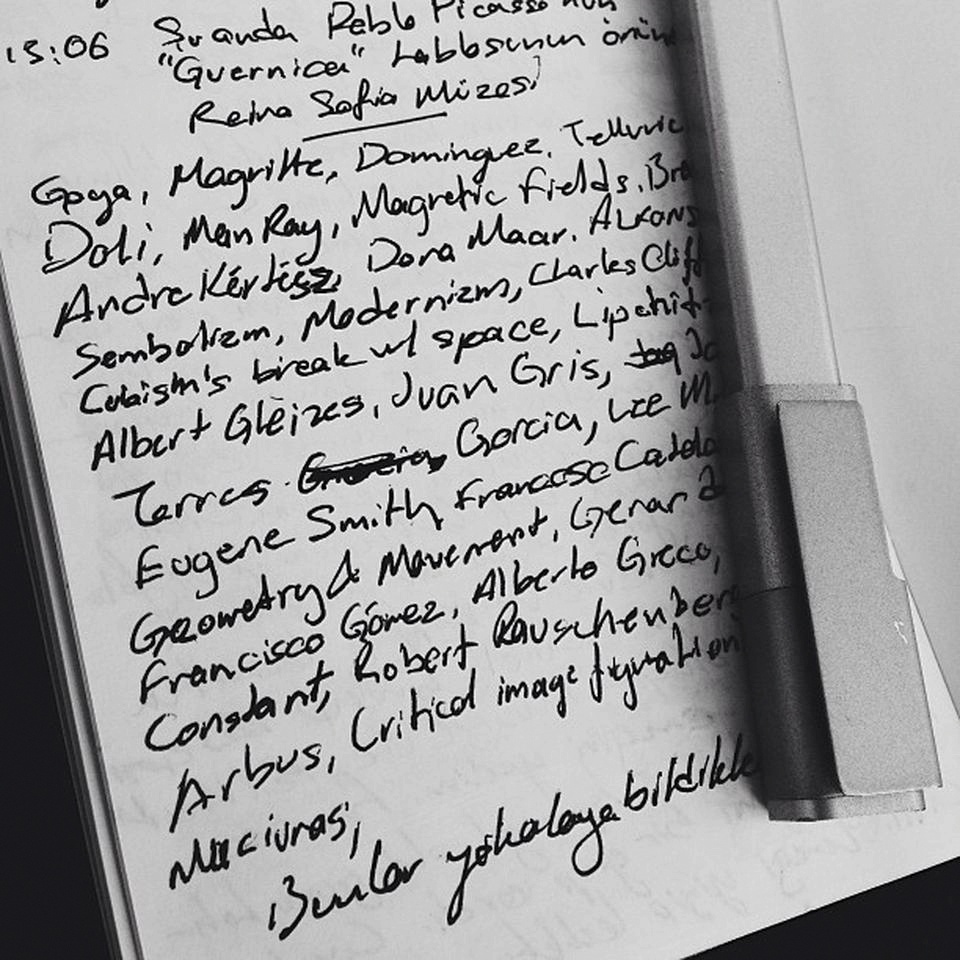 15:06 Şu anda Pablo Picasso'nun
"Guernica" tablosunun önün
Reina Sofia Müzesi
Goya, Magritte, Dominguez, Telluric
Dali, Man Ray, Magnetic Fields, Bra
Andre Kértész, Dora Maar,
Sembolizm, Modernizm, Charles Cliff
Cubism's break w/ space, Lipchit
Albert Glèizes, Juan Gris,
Torres Garcia, Lee M.
Eugene Smith, Francesc Catala
Geometry & Movement, Genar
Francisco Gómez, Alberto Greco,
Constant, Robert Rauschenberg
Arbus, Critical image figuration
Maciunas,
Bunlar yakalayabildikle